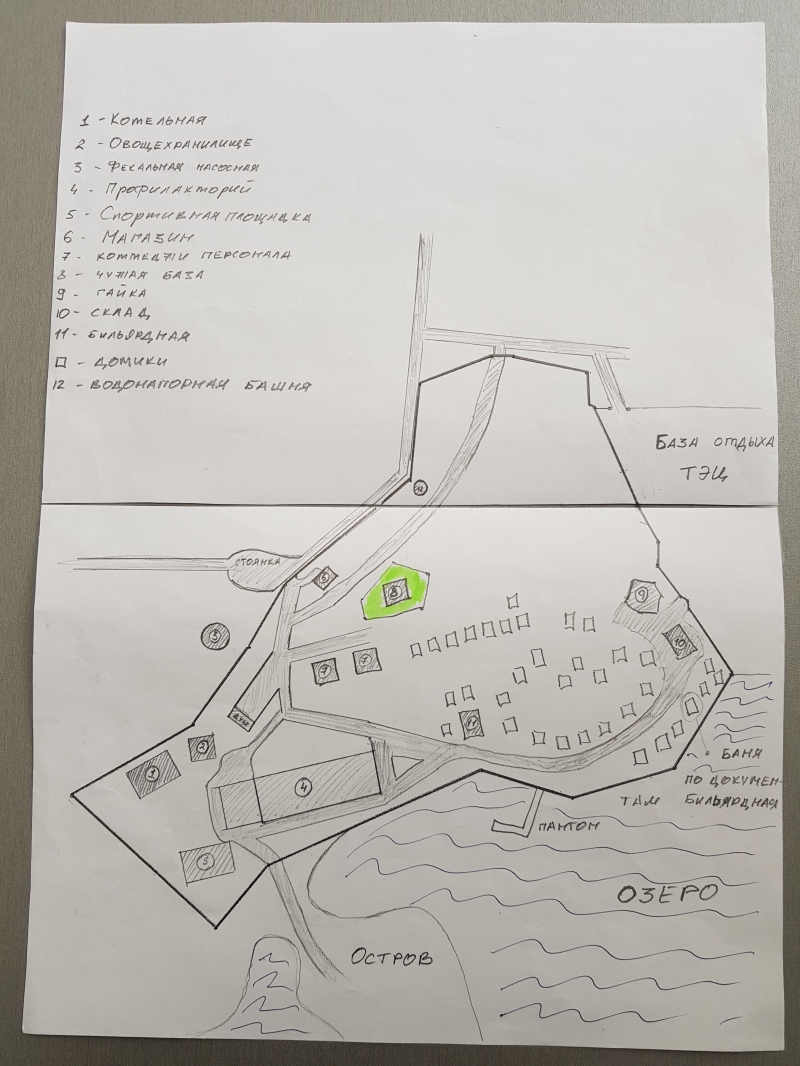 1 - Котельная
2 - Овощехранилище
3 - Фекальная насосная
4 - Профилакторий
5 - Спортивная площадка
6 - Магазин
7 - коттеджи персонала
8 - чужая база
9 - гайка
10 - склад
11 - бильярдная
□ - домики
12 - водонапорная башня
База отдыха
ТЭЦ
12
стоянка
6
8
9
3
10
7
7
11
2
1
4
Баня
по докумен-
там бильярдная
пантон
5
Озеро
Остров